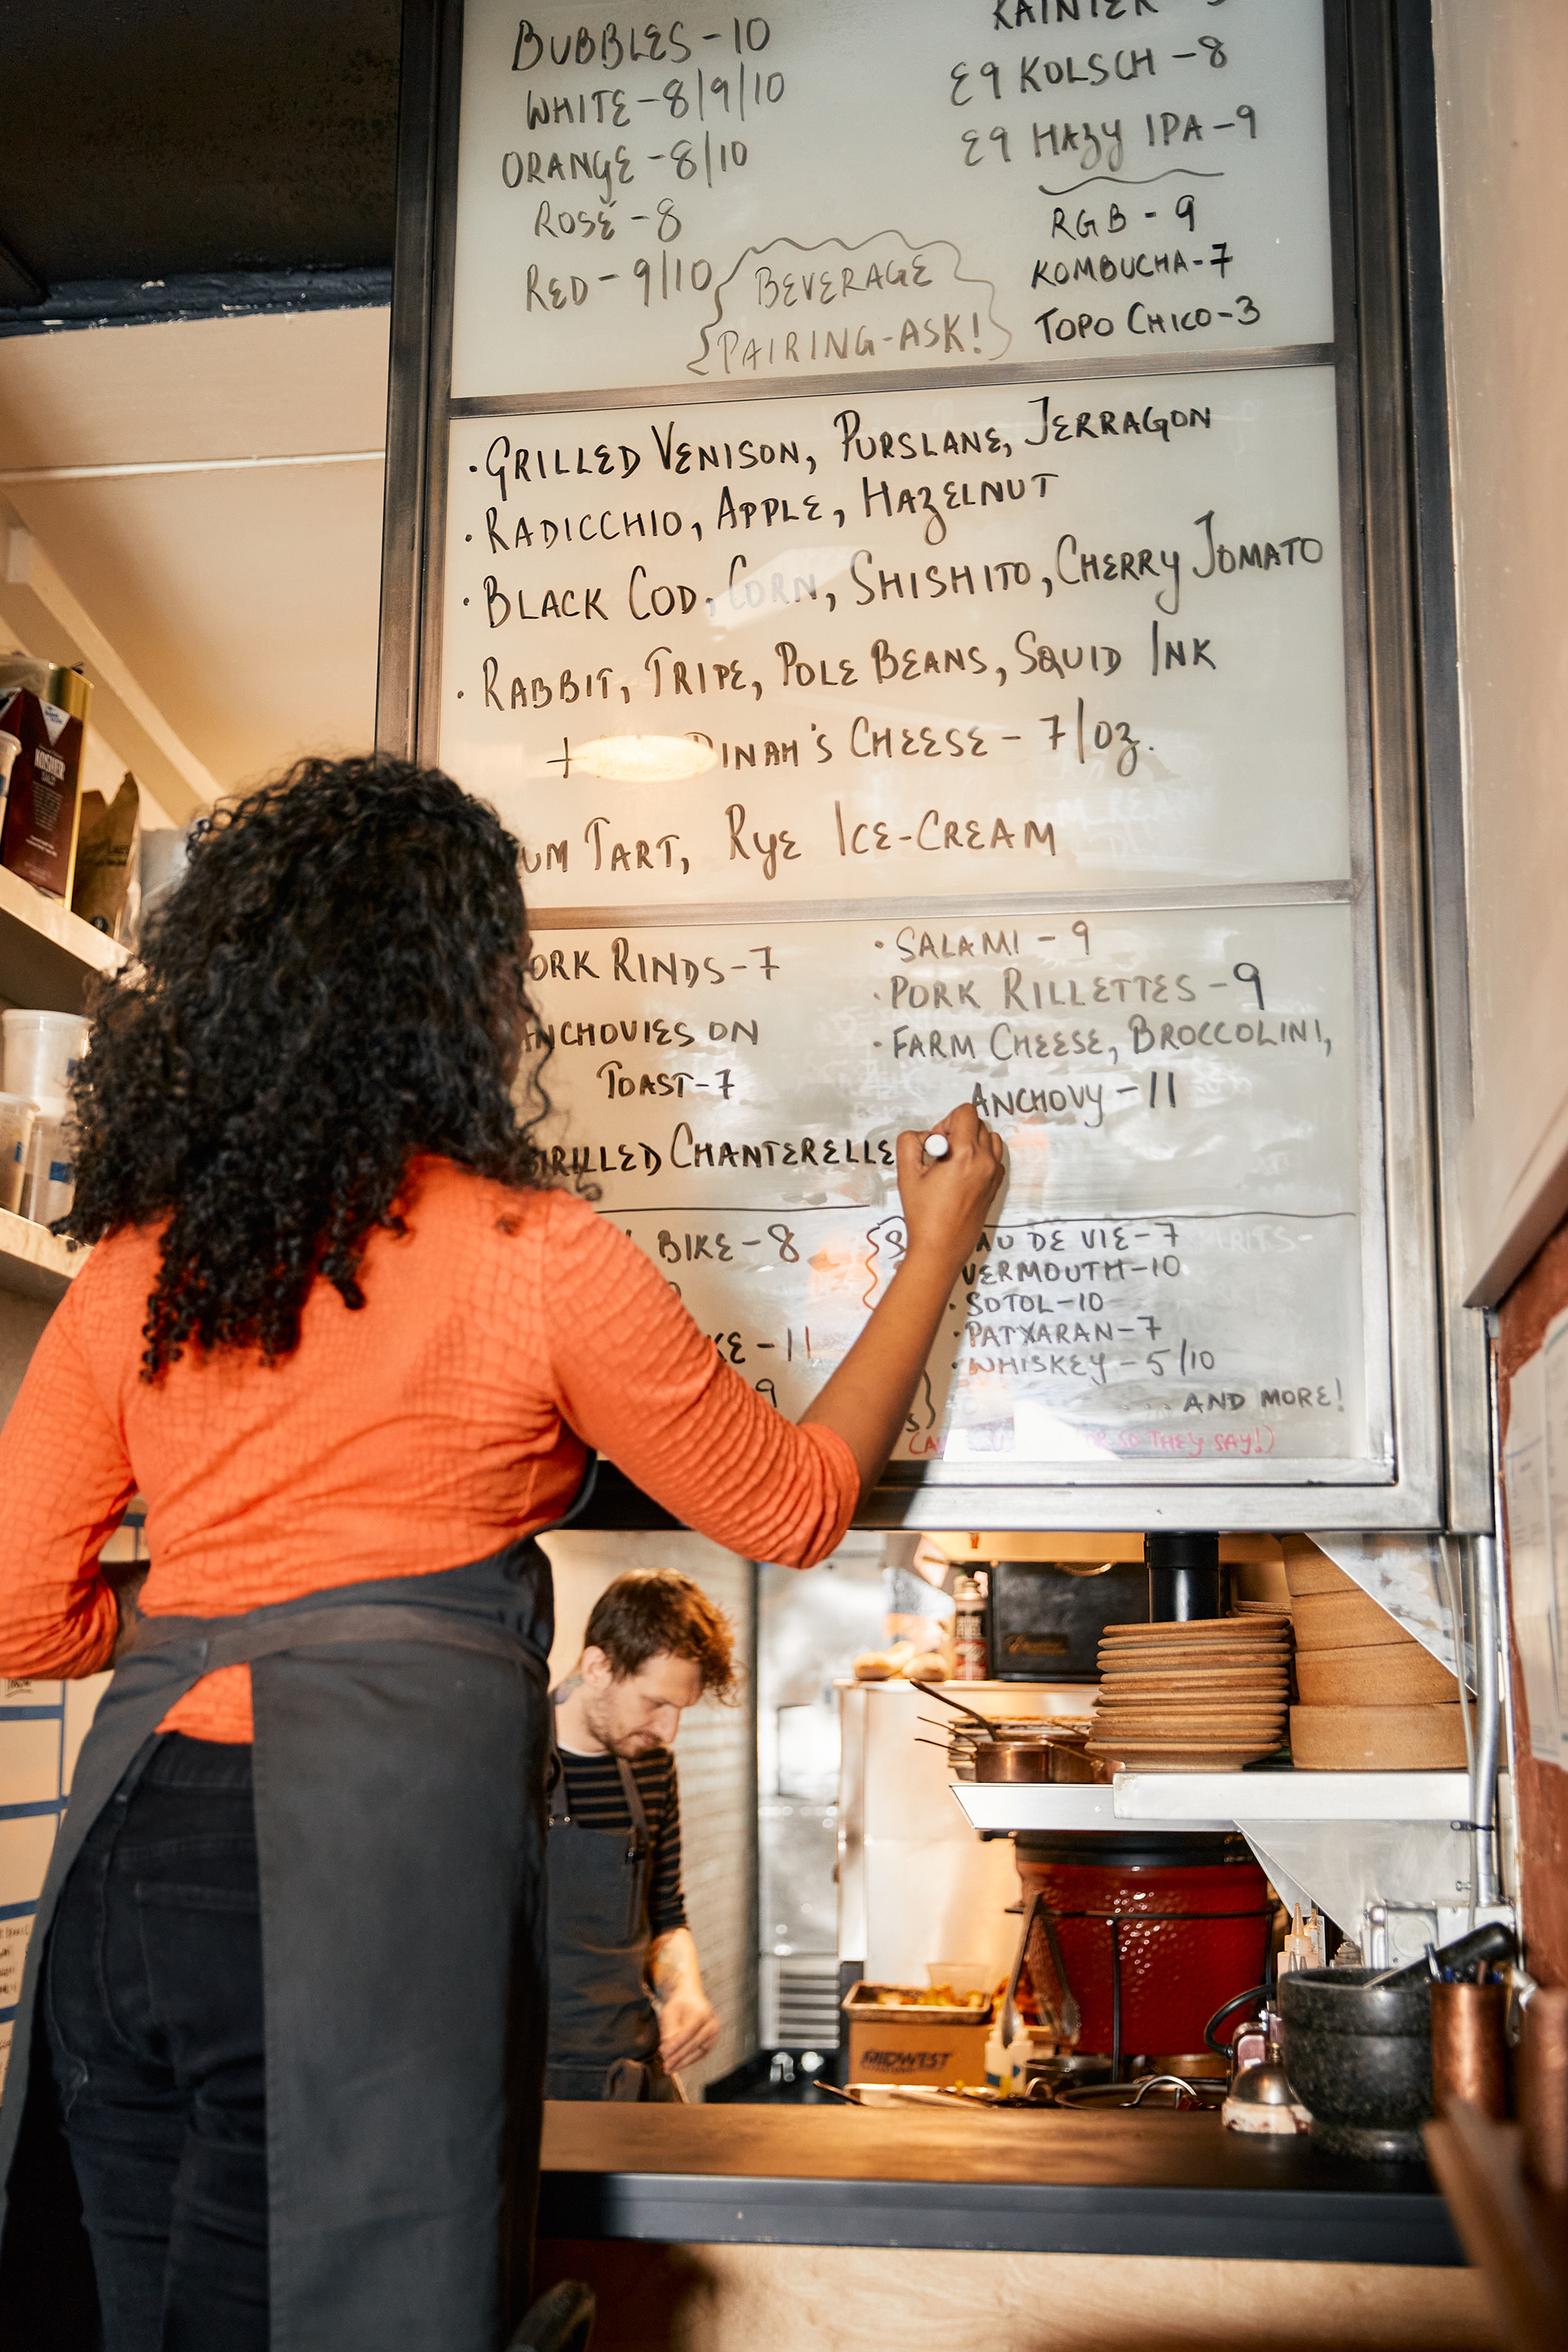 BUBBLES-10
WHITE-8/9/10
ORANGE-8/10
ROSÉ-8
RED-9/10
BEVERAGE
PAIRING-ASK!
RAINIER
E9 KOLSCH-8
E9 HAZY IPA-9
RGB-9
KOMBUCHA-7
TOPO CHICO-3
·GRILLED VENISON, PURSLANE, TERRAGON
·RADICCHIO, APPLE, HAZELNUT
·BLACK COD, CORN, SHISHITO, CHERRY TOMATO
·RABBIT, TRIPE, POLE BEANS, SQUID INK
+ DINAH'S CHEESE-7/OZ.
UM TART, RYE ICE-CREAM
ORK RINDS-7
ANCHOVIES ON
TOAST-7
GRILLED CHANTERELLE
·SALAMI-9
·PORK RILLETTES-9
·FARM CHEESE, BROCCOLINI,
ANCHOVY-11
BIKE-8
KE-11
9
AU DE VIE-7
VERMOUTH-10
·SOTOL-10
·PATXARAN-7
·WHISKEY-5/10
... AND MORE!
OR SO THEY SAY!)
KOSHER
MIDWEST